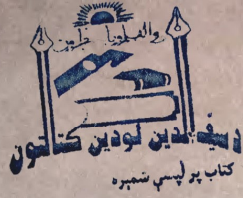 والقلم وما يسطرون
د سيف الدين لودين كتابتون
كتاب پر لپسې نمبره